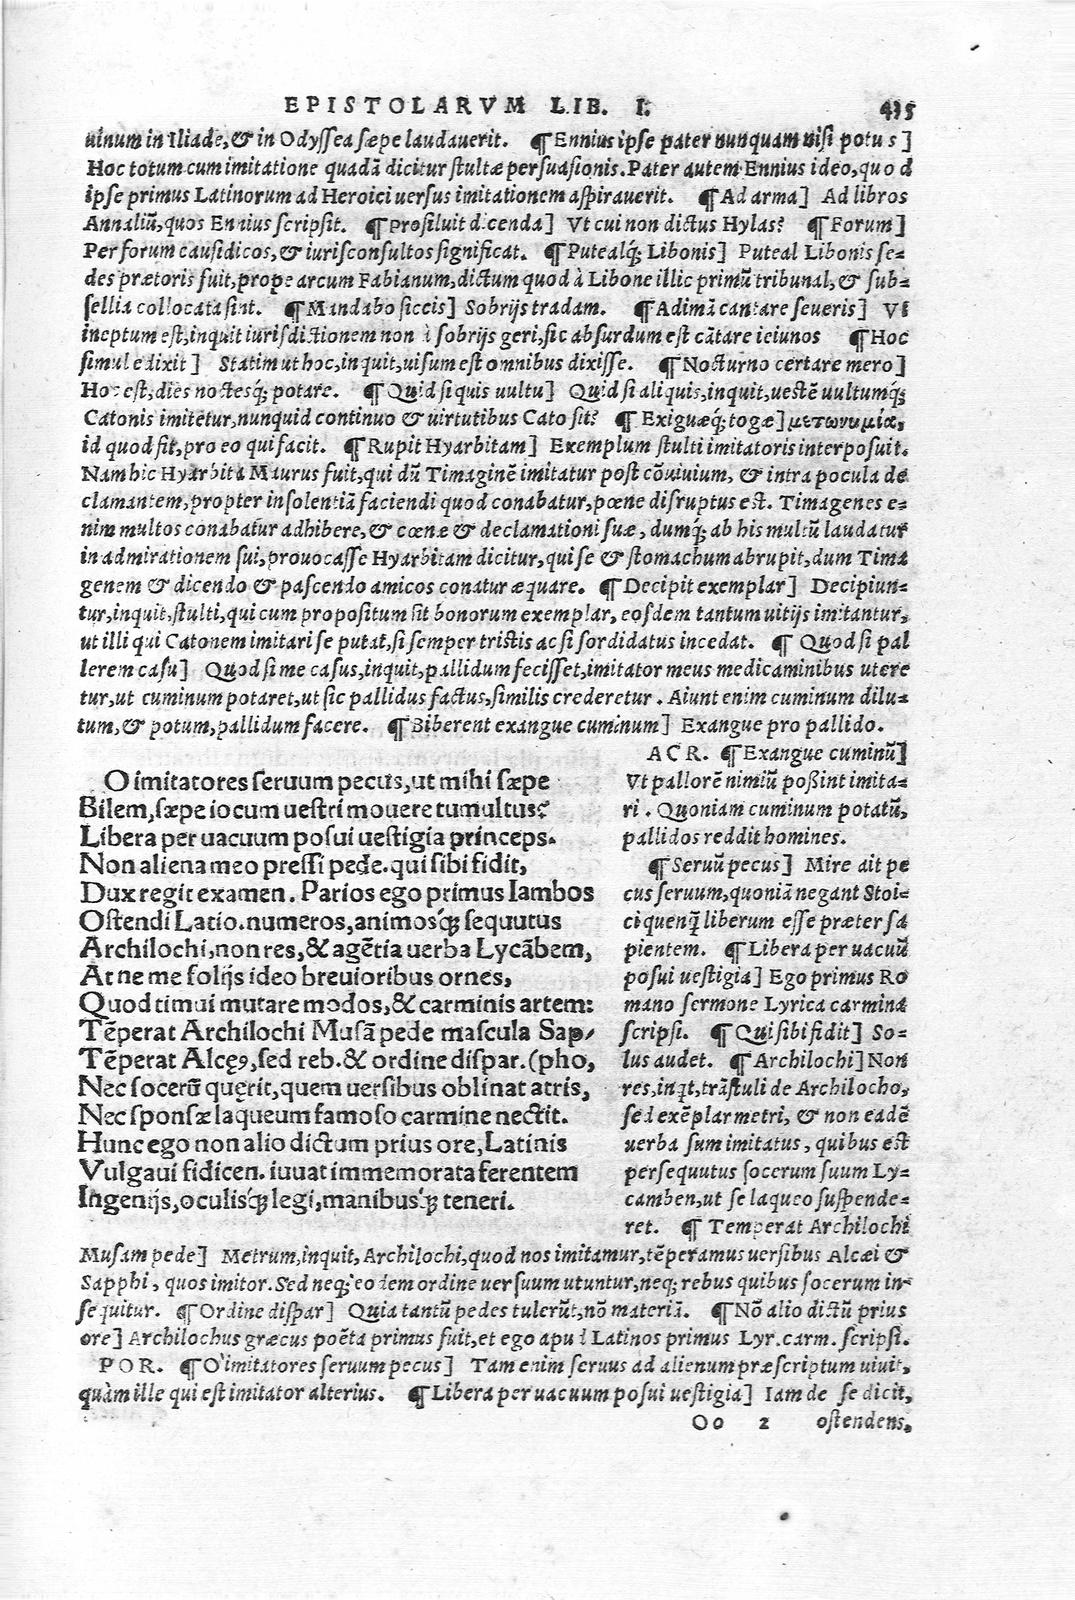 EPISTOLARVM LIB. I. 435
uinum in Iliade, & in Odyssea sæpe laudauerit. ¶ Ennius ipse pater nunquam nisi potus]
Hoc totum cum imitatione quadã dicitur stultæ persuasionis. Pater autem Ennius ideo, quo d
ipse primus Latinorum ad Heroici uersus imitationem aspirauerit. ¶ Ad arma] Ad libros
Annaliũ, quos Ennius scripsit. ¶ Prosiluit dicenda] Vt cui non dictus Hylas? ¶ Forum]
Per forum causidicos, & iurisconsultos significat. ¶ Putealq; Libonis] Puteal Libonis se=
des prætoris fuit, prope arcum Fabianum, dictum quod à Libone illic primũ tribunal, & sub=
sellia collocata sint. ¶ Mandabo siccis] Sobrijs tradam. ¶ Adimã cantare seueris] Vt
ineptum est, inquit iurisdictionem non à sobrijs geri, sic absurdum est cãtare ieiunos ¶ Hoc
simul edixit] Statim ut hoc, inquit, uisum est omnibus dixisse. ¶ Nocturno certare mero]
Hoc est, dies noctesq; potare. ¶ Quid si quis uultu] Quid si aliquis, inquit, uestẽ uultumq;
Catonis imitetur, nunquid continuo & uirtutibus Cato sit? ¶ Exiguæq; togæ] μετωνυμία,
id quod fit, pro eo qui facit. ¶ Rupit Hyarbitam] Exemplum stulti imitatoris interposuit.
Nam hic Hyarbita Maurus fuit, qui dũ Timaginẽ imitatur post cõuiuium, & intra pocula de
clamantem, propter insolentiã faciendi quod conabatur, pœne disruptus est. Timagenes e=
nim multos conabatur adhibere, & cœnæ & declamationi suæ, dumq; ab his multũ laudatur
in admirationem sui, prouocasse Hyarbitam dicitur, qui se & stomachum abrupit, dum Tima
genem & dicendo & pascendo amicos conatur æquare. ¶ Decipit exemplar] Decipiun=
tur, inquit, stulti, qui cum propositum sit bonorum exemplar, eosdem tantum uitijs imitantur,
ut illi qui Catonem imitari se putat, si semper tristis ac si sordidatus incedat. ¶ Quod si pal
lerem casu] Quod si me casus, inquit, pallidum fecisset, imitator meus medicaminibus utere
tur, ut cuminum potaret, ut sic pallidus factus, similis crederetur. Aiunt enim cuminum dilu=
tum, & potum, pallidum facere. ¶ Biberent exangue cuminum] Exangue pro pallido.
O imitatores seruum pecus, ut mihi sæpe
Bilem, sæpe iocum uestri mouere tumultus?
Libera per uacuum posui uestigia princeps.
Non aliena meo pressi pede. qui sibi fidit,
Dux regit examen. Parios ego primus Iambos
Ostendi Latio. numeros, animosq; sequutus
Archilochi, non res, & agẽtia uerba Lycãbem,
At ne me folijs ideo breuioribus ornes,
Quod timui mutare modos, & carminis artem:
Tẽperat Archilochi Musã pede mascula Sap/
Tẽperat Alcęꝰ, sed reb. & ordine dispar. (pho,
Nec socerũ quęrit, quem uersibus oblinat atris,
Nec sponsæ laqueum famoso carmine nectit.
Hunc ego non alio dictum prius ore, Latinis
Vulgaui fidicen. iuuat immemorata ferentem
Ingenijs, oculisq; legi, manibusq; teneri.
ACR. ¶ Exangue cuminũ]
Vt pallorẽ nimiũ poßint imita=
ri. Quoniam cuminum potatũ,
pallidos reddit homines.
¶ Seruũ pecus] Mire ait pe
cus seruum, quoniã negant Stoi=
ci quenq̃ liberum esse præter sa
pientem. ¶ Libera per uacuũ
posui uestigia] Ego primus Ro
mano sermone Lyrica carmina
scripsi. ¶ Qui sibi fidit] So=
lus audet. ¶ Archilochi] Non
res, inq̃t, trãstuli de Archilocho,
sed exẽplar metri, & non eadẽ
uerba sum imitatus, quibus est
persequutus socerum suum Ly=
camben, ut se laqueo suspende=
ret. ¶ Temperat Archilochi
Musam pede] Metrum, inquit, Archilochi, quod nos imitamur, tẽperamus uersibus Alcæi &
Sapphi, quos imitor. Sed neq; eodem ordine uersuum utuntur, neq; rebus quibus socerum in=
sequitur. ¶ Ordine dispar] Quia tantũ pedes tulerũt, nõ materiã. ¶ Nõ alio dictũ prius
ore] Archilochus græcus poëta primus fuit, et ego apud Latinos primus Lyr. carm. scripsi.
POR. ¶ O imitatores seruum pecus] Tam enim seruus ad alienum præscriptum uiuit,
quàm ille qui est imitator alterius. ¶ Libera per uacuum posui uestigia] Iam de se dicit,
Oo 2 ostendens,